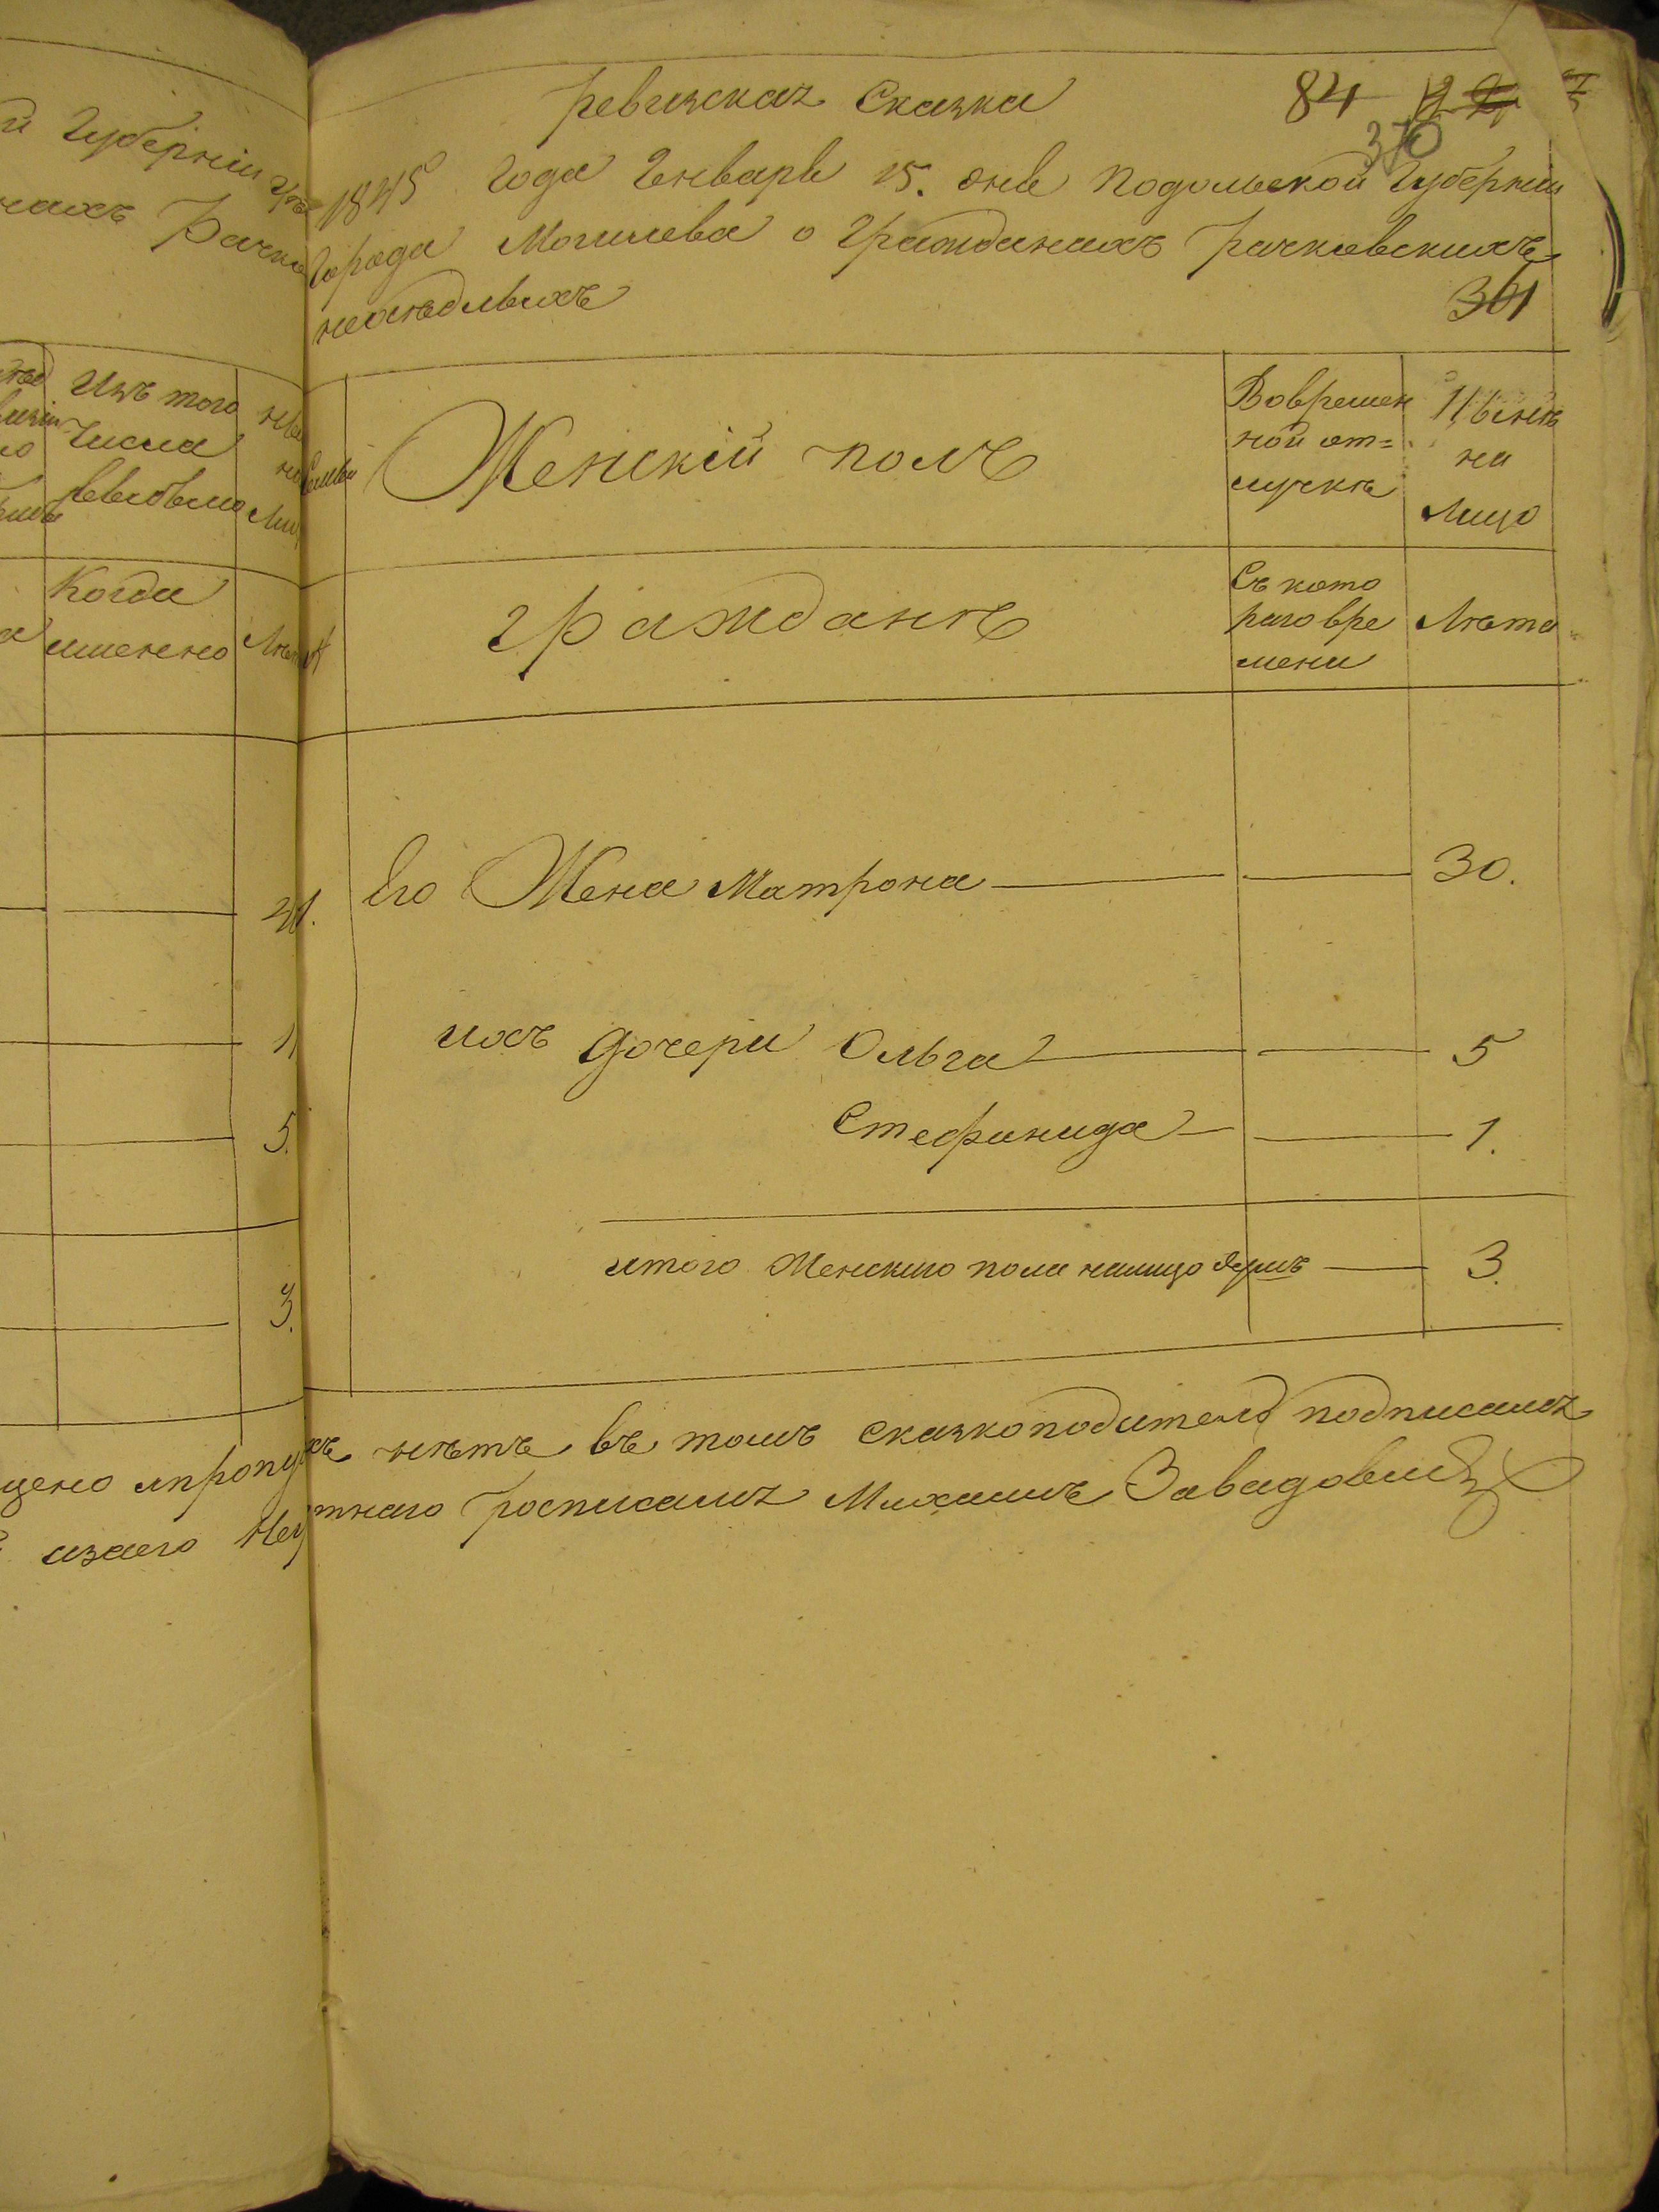 й Губерніи
нахъ Рачко
Изъ того
числа
Когда
именно
41.
1
5.
3.
щено и пропу
изаего Неу
Ревизская Сказка 84
370
1845 Года Генваря 15. дня Подольской Губерніи
Города Могилева о Гражданахъ Рачковскихъ
361
Семьи Женскій полъ
Вовремен
ной от=
лучке
Ныне
на
Лицо
Гражданъ
Съ кото
раго вре
мени
Лета
Его Жена Матрона 30.
ихъ дочери Ольга 5
Стефанида 1.
итого Женскаго пола налицо душъ 3.
хъ нетъ въ томъ сказкоподатель подписался
тнаго росписался Михаилъ